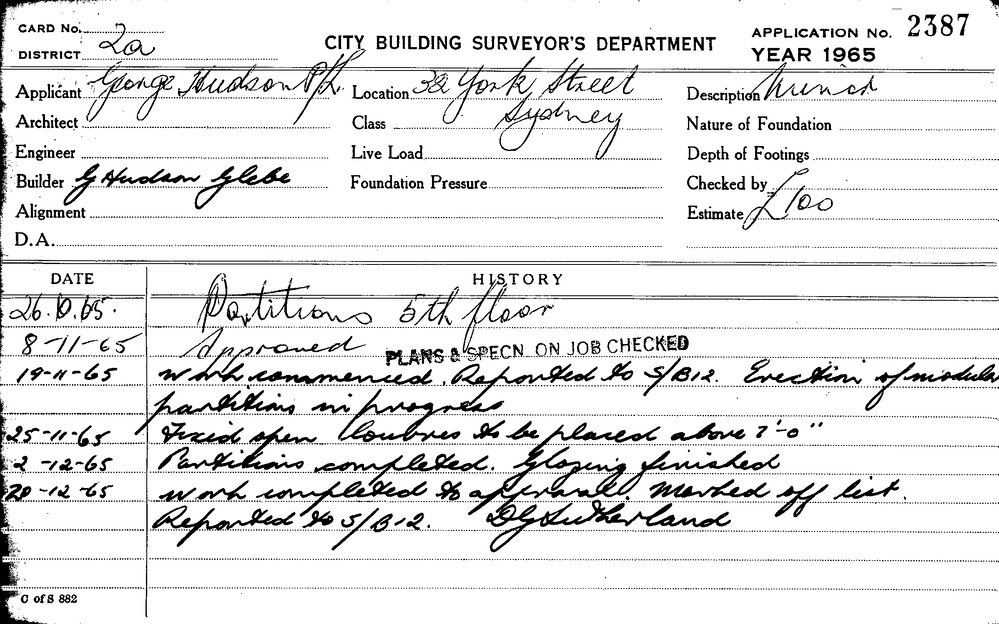 CARD No. 2a
DISTRICT
CITY BUILDING SURVEYOR'S DEPARTMENT
APPLICATION No. 2387
YEAR 1965
Applicant George Hudson P/L
Location 32 York Street
Sydney
Description Minor
Architect
Class
Nature of Foundation
Engineer
Live Load
Depth of Footings
Builder G Hudson Glebe
Foundation Pressure
Checked by
Alignment
Estimate £100
D.A.
DATE HISTORY
26.10.65. Partitions 5th floor
8-11-65 Approved PLANS & SPECN ON JOB CHECKED
19-11-65 Work commenced. Reported to S/B12. Erection of modular
partitions in progress
25-11-65 Fixed open louvres to be placed above 7'-0"
2-12-65 Partitions completed. Glazing finished
20-12-65 Work completed to approval. Marked off list.
Reported to S/B12. DG Sutherland
C of S 882